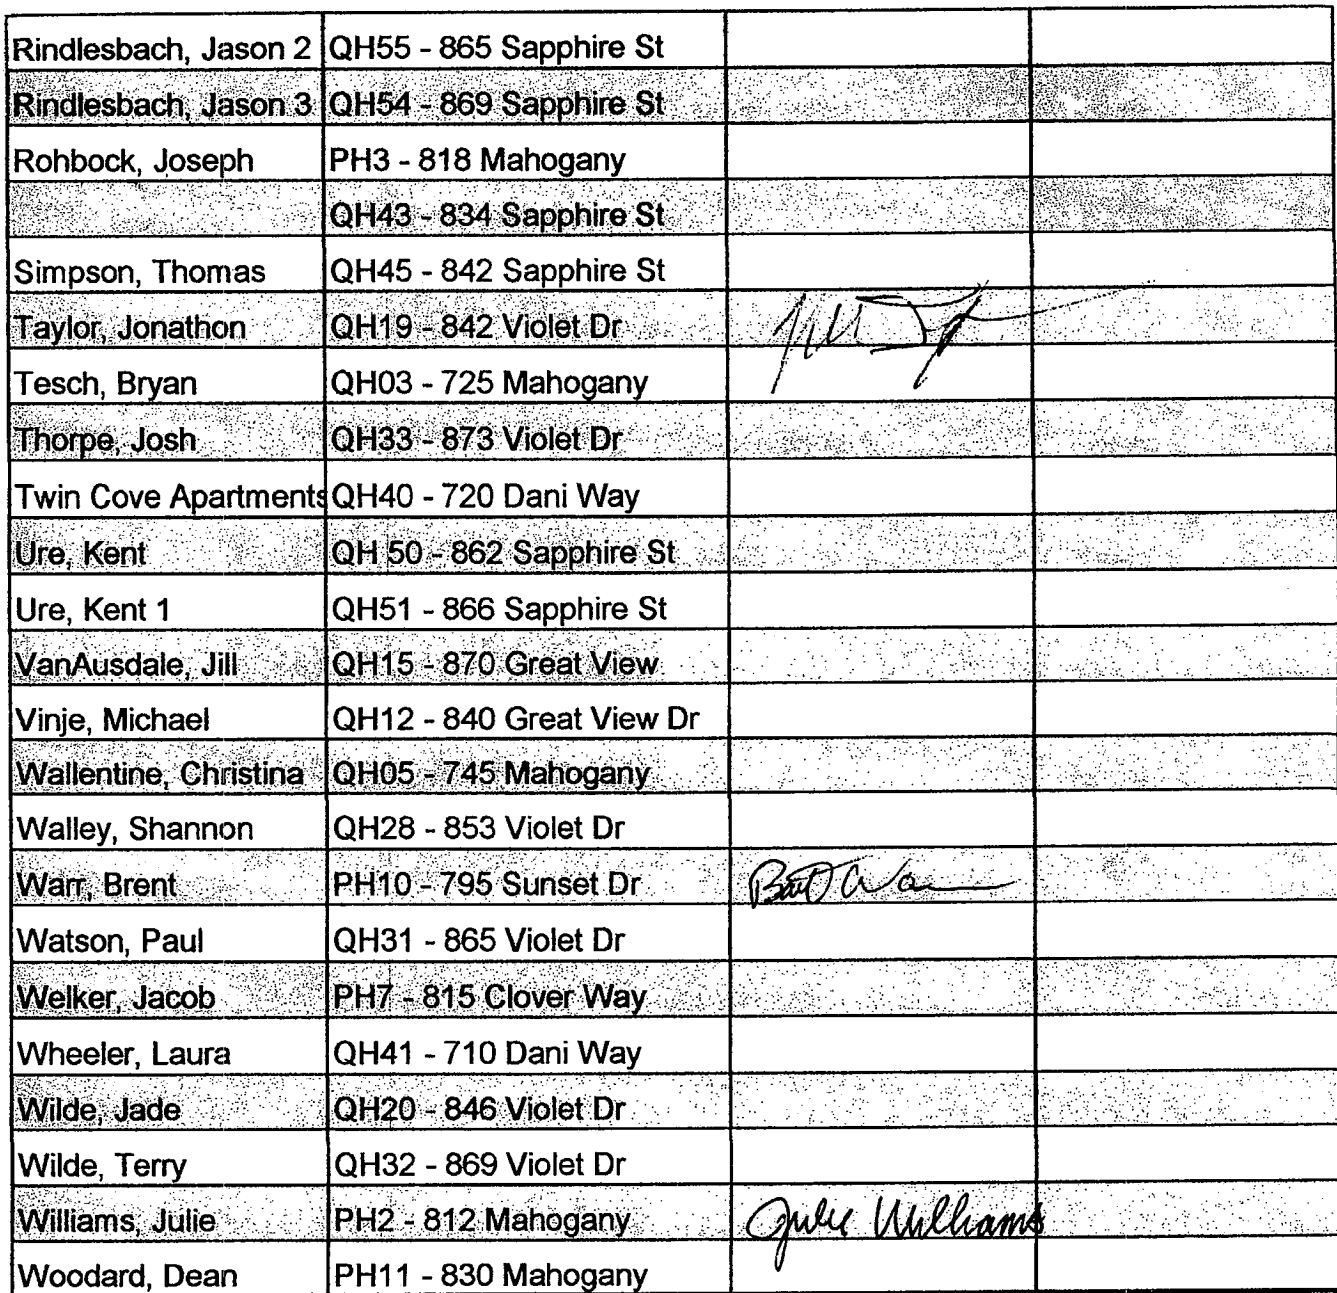 Rindlesbach, Jason 2 QH55 - 865 Sapphire St
Rindlesbach, Jason 3 QH54 - 869 Sapphire St
Rohbock, Joseph PH3 - 818 Mahogany
QH43 - 834 Sapphire St
Simpson, Thomas QH45 - 842 Sapphire St
Taylor, Jonathon QH19 - 842 Violet Dr
Tesch, Bryan QH03 - 725 Mahogany
Thorpe, Josh QH33 - 873 Violet Dr
Twin Cove Apartments QH40 - 720 Dani Way
Ure, Kent QH 50 - 862 Sapphire St
Ure, Kent 1 QH51 - 866 Sapphire St
VanAusdale, Jill QH15 - 870 Great View
Vinje, Michael QH12 - 840 Great View Dr
Wallentine, Christina QH05 - 745 Mahogany
Walley, Shannon QH28 - 853 Violet Dr
Warr, Brent PH10 - 795 Sunset Dr
Watson, Paul QH31 - 865 Violet Dr
Welker, Jacob PH7 - 815 Clover Way
Wheeler, Laura QH41 - 710 Dani Way
Wilde, Jade QH20 - 846 Violet Dr
Wilde, Terry QH32 - 869 Violet Dr
Williams, Julie PH2 - 812 Mahogany Julie Williams
Woodard, Dean PH11 - 830 Mahogany